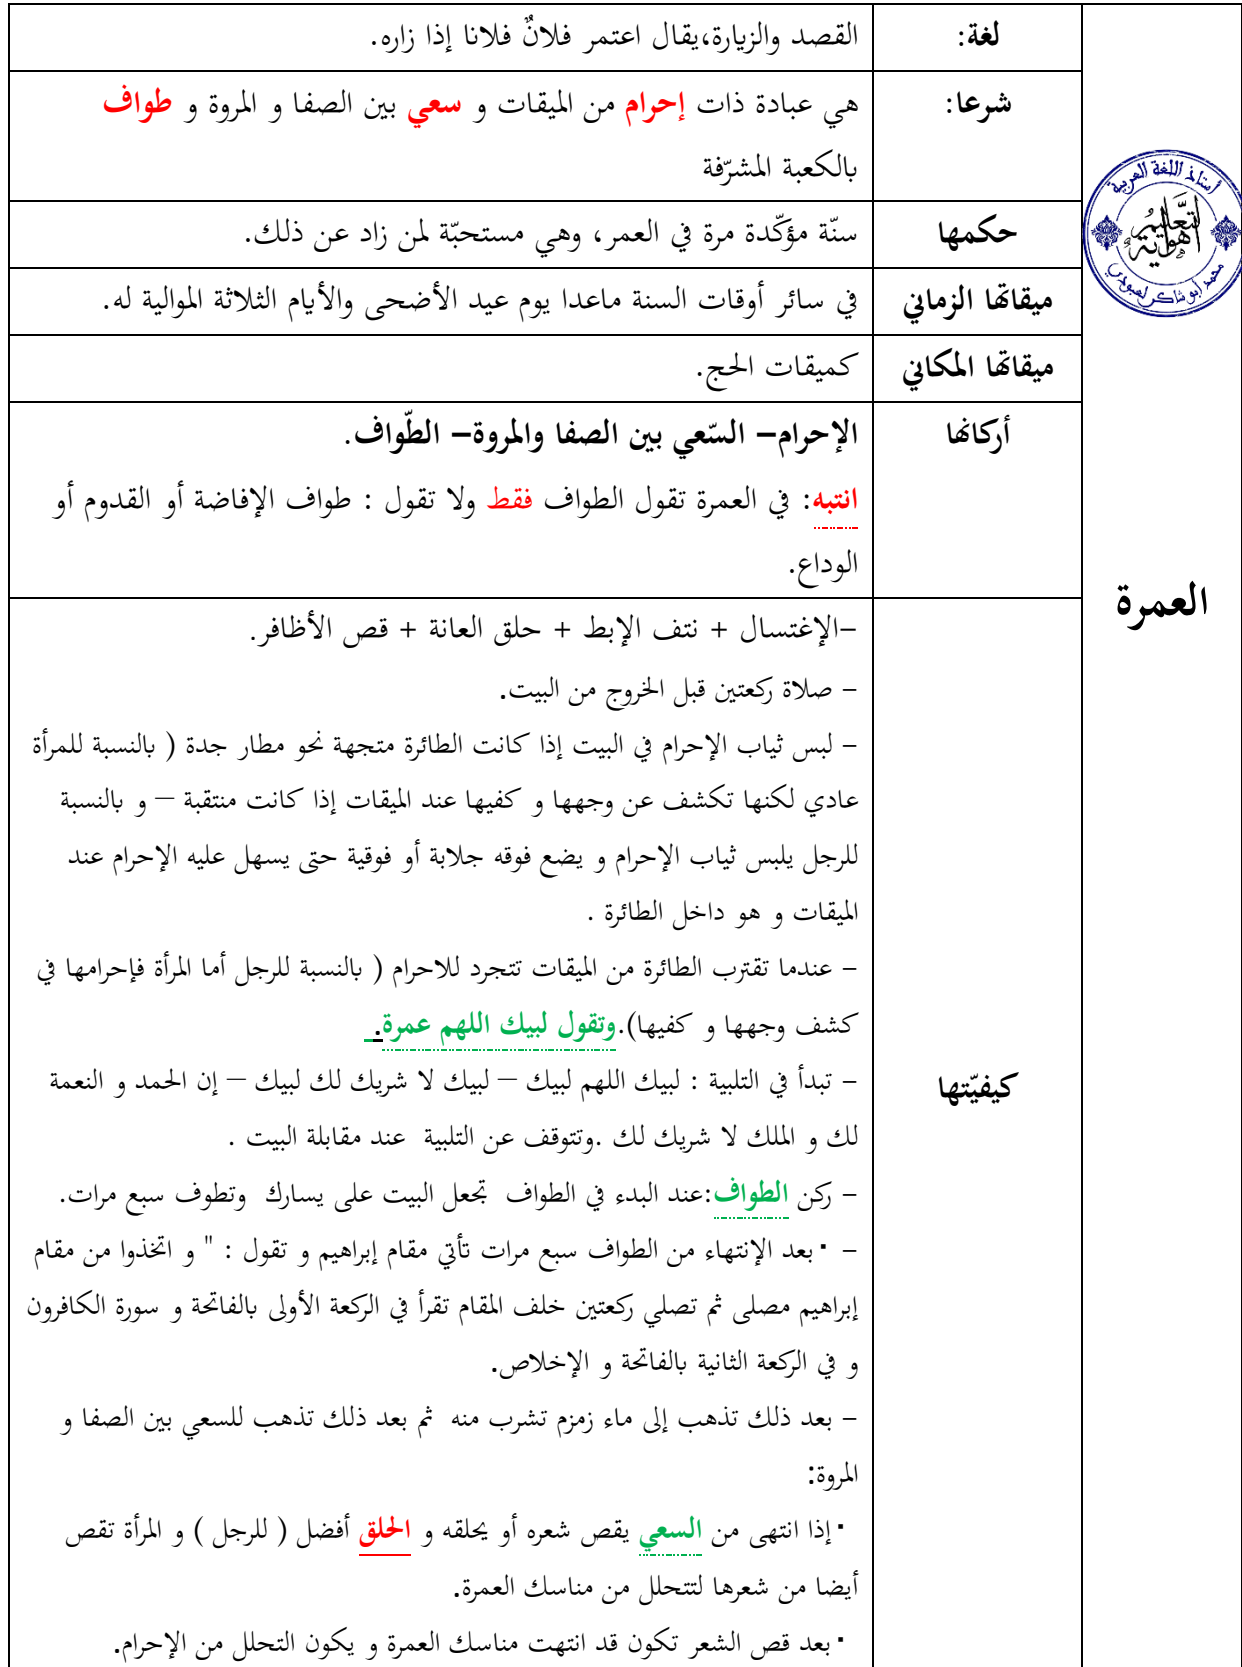 العمرة
أستاذ اللغة العربية
محمد أبو شاكر لعبودي
لغة:
القصد والزيارة،يقال اعتمر فلانٌ فلانا إذا زاره.
شرعا:
هي عبادة ذات إحرام من الميقات و سعي بين الصفا و المروة و طواف
بالكعبة المشرّفة
حكمها
سنّة مؤكّدة مرة في العمر، وهي مستحبّة لمن زاد عن ذلك.
ميقاتها الزماني
في سائر أوقات السنة ماعدا يوم عيد الأضحى والأيام الثلاثة الموالية له.
ميقاتها المكاني
كميقات الحج.
أركانها
الإحرام– السّعي بين الصفا والمروة– الطّواف.
انتبه: في العمرة تقول الطواف فقط ولا تقول : طواف الإفاضة أو القدوم أو
الوداع.
كيفيّتها
–الإغتسال + نتف الإبط + حلق العانة + قص الأظافر.
– صلاة ركعتين قبل الخروج من البيت.
– لبس ثياب الإحرام في البيت إذا كانت الطائرة متجهة نحو مطار جدة ( بالنسبة للمرأة
عادي لكنها تكشف عن وجهها و كفيها عند الميقات إذا كانت منتقبة – و بالنسبة
للرجل يلبس ثياب الإحرام و يضع فوقه جلابة أو فوقية حتى يسهل عليه الإحرام عند
الميقات و هو داخل الطائرة .
– عندما تقترب الطائرة من الميقات تتجرد للاحرام ( بالنسبة للرجل أما المرأة فإحرامها في
كشف وجهها و كفيها).وتقول لبيك اللهم عمرة.
– تبدأ في التلبية : لبيك اللهم لبيك – لبيك لا شريك لك لبيك – إن الحمد و النعمة
لك و الملك لا شريك لك .وتتوقف عن التلبية عند مقابلة البيت .
– ركن الطواف:عند البدء في الطواف تجعل البيت على يسارك وتطوف سبع مرات.
– ▪ بعد الإنتهاء من الطواف سبع مرات تأتي مقام إبراهيم و تقول : " و اتخذوا من مقام
إبراهيم مصلى ثم تصلي ركعتين خلف المقام تقرأ في الركعة الأولى بالفاتحة و سورة الكافرون
و في الركعة الثانية بالفاتحة و الإخلاص.
– بعد ذلك تذهب إلى ماء زمزم تشرب منه ثم بعد ذلك تذهب للسعي بين الصفا و
المروة:
▪ إذا انتهى من السعي يقص شعره أو يحلقه و الحلق أفضل ( للرجل ) و المرأة تقص
أيضا من شعرها لتتحلل من مناسك العمرة.
▪ بعد قص الشعر تكون قد انتهت مناسك العمرة و يكون التحلل من الإحرام.